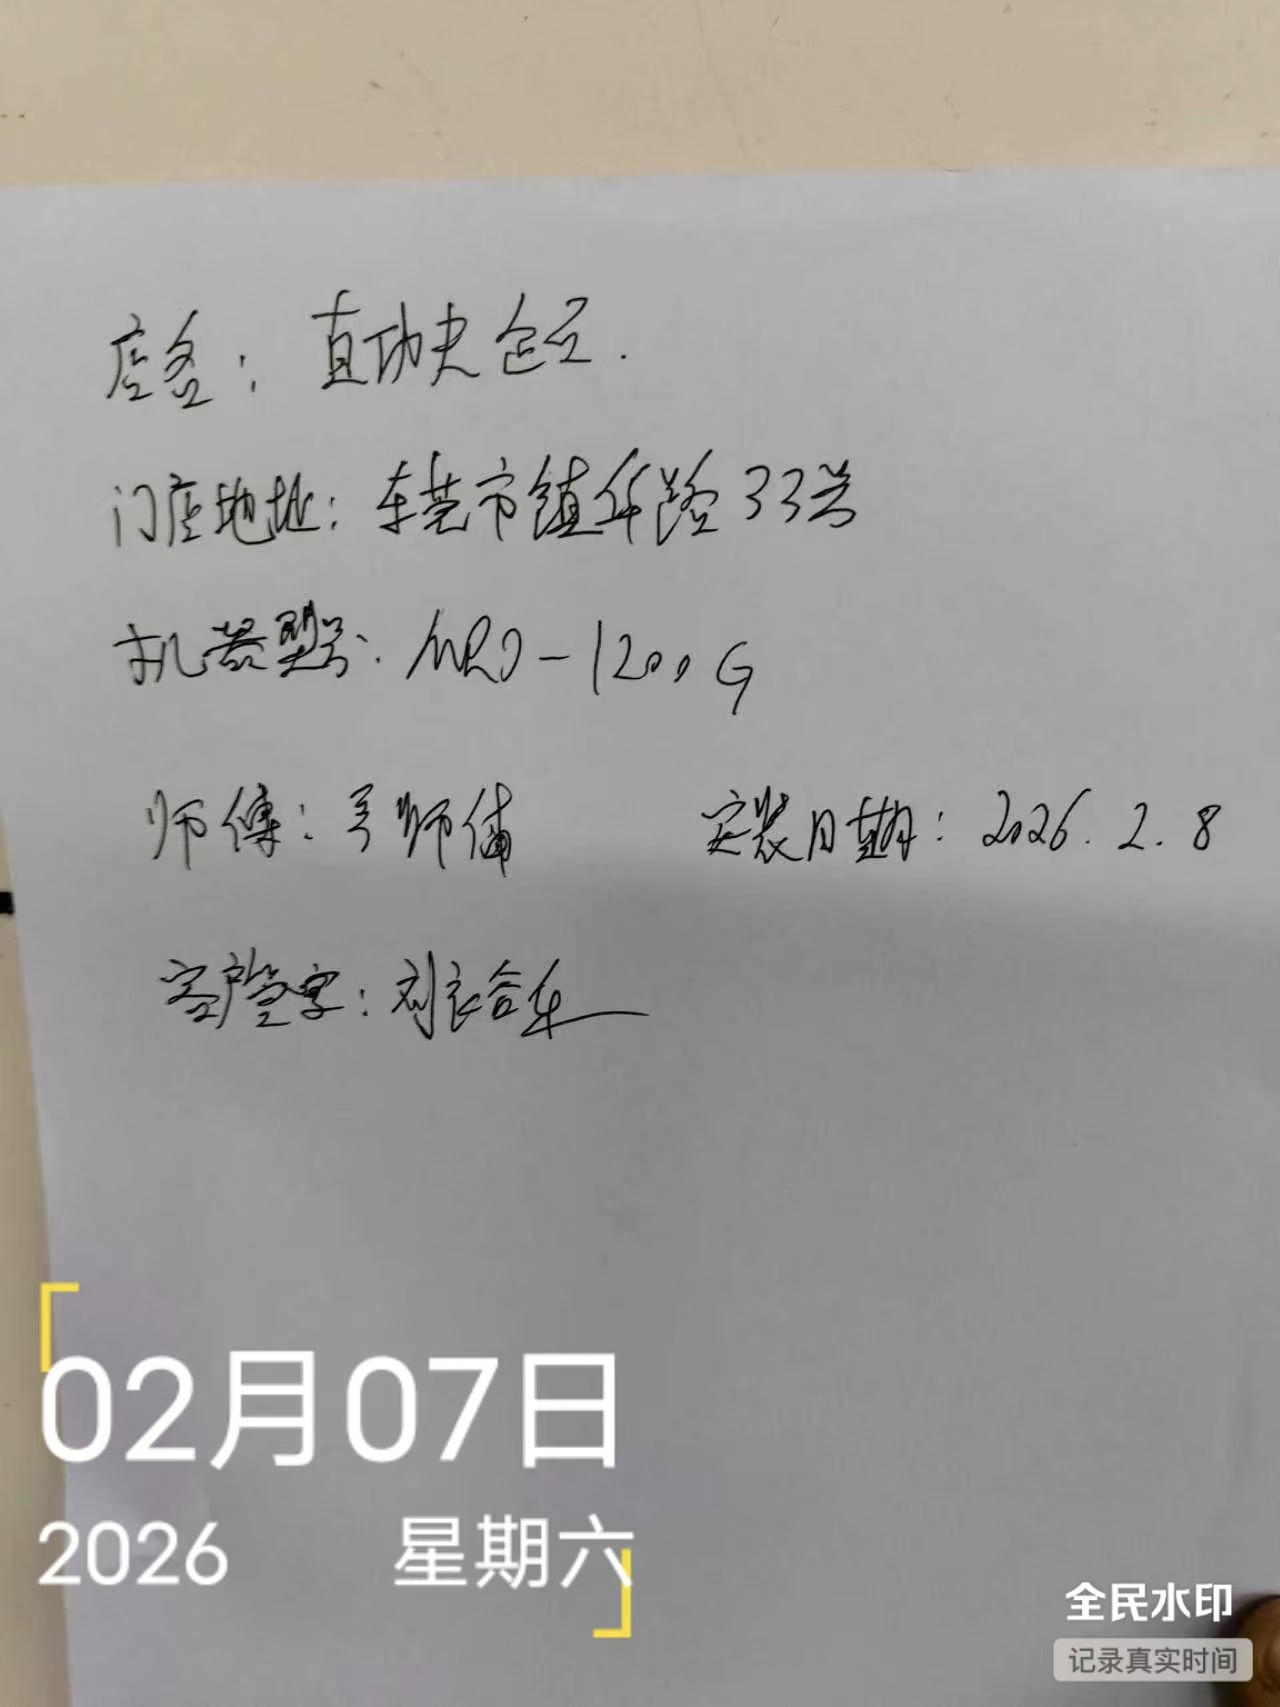 店名：真功夫
门店地址：东莞市镇华路33号
机器型号：MRO-1200G
师傅： 师傅 安装日期：2026.2.8
客户签字：刘
02月07日
2026 星期六
全民水印
记录真实时间